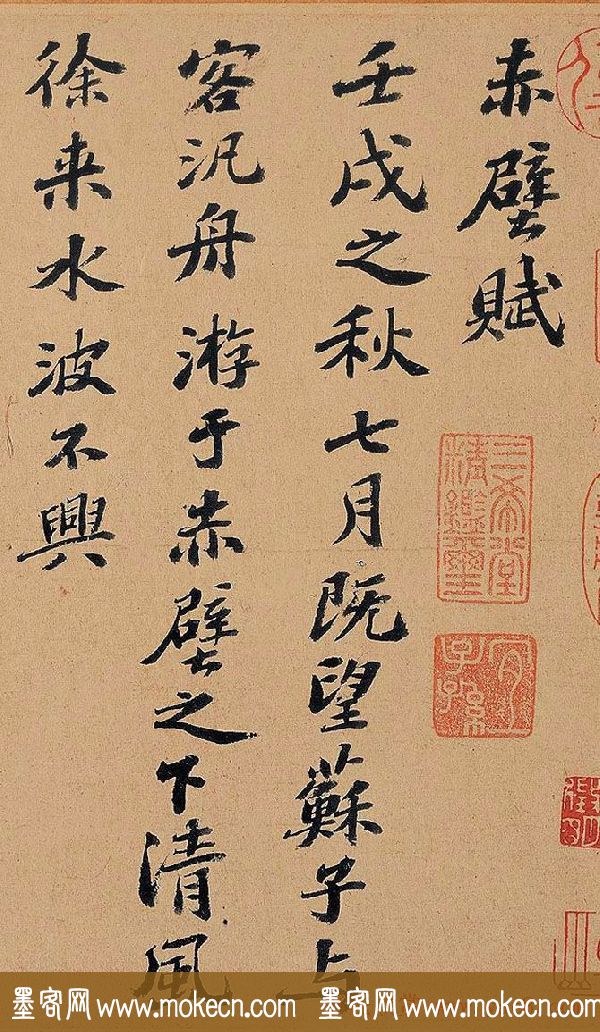 赤壁賦
壬戌之秋七月既望蘇子与
客汎舟游于赤壁之下清風
徐来水波不興
三希堂
精鑑璽
宜子孫
墨客网 www.mokecn.com 墨客网 www.mokecn.com